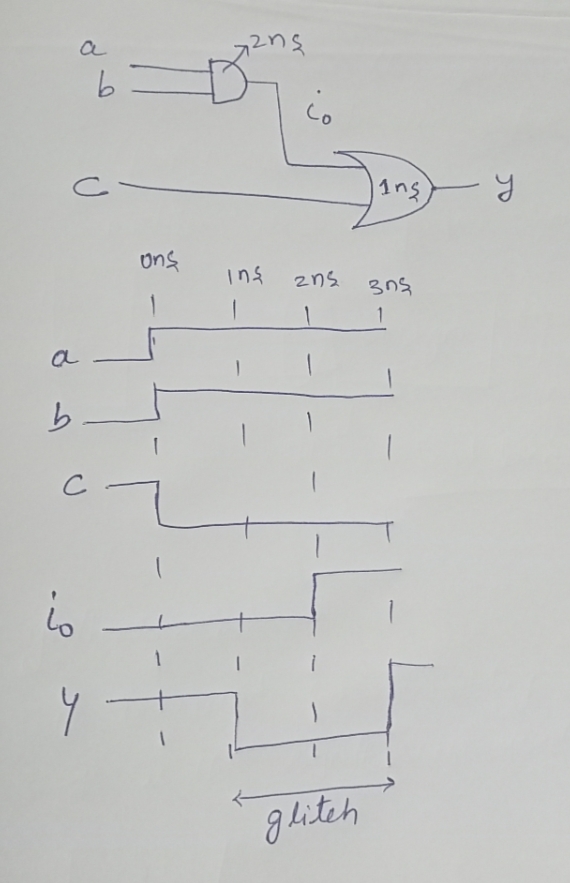 a
2ns
b
i₀
C
1ns
y
0ns 1ns 2ns 3ns
a
b
C
i₀
y
glitch